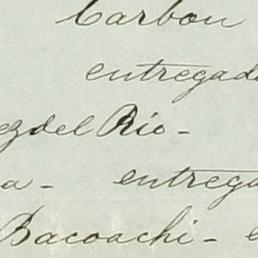 Carbon
entregad
ez del Rio -
a - entrega
Bacoachi - e